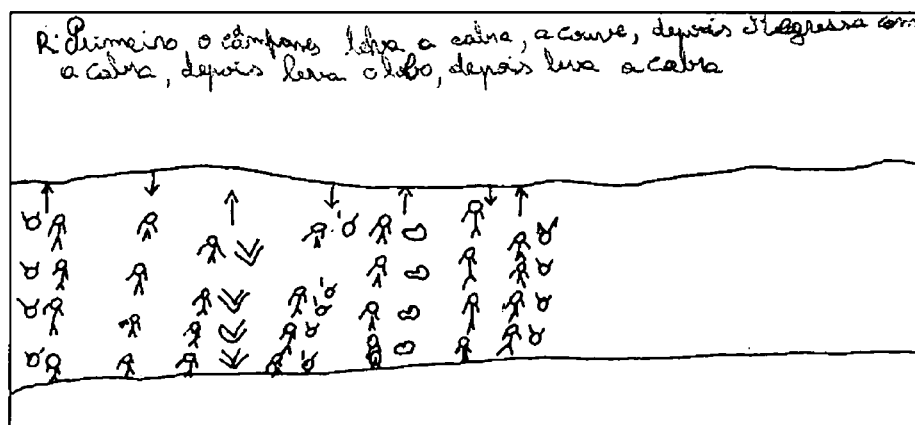 R: Primeiro, o câmpones leva a cabra, a couve, depois regressa com
a cabra, depois leva o lobo, depois leva a cabra